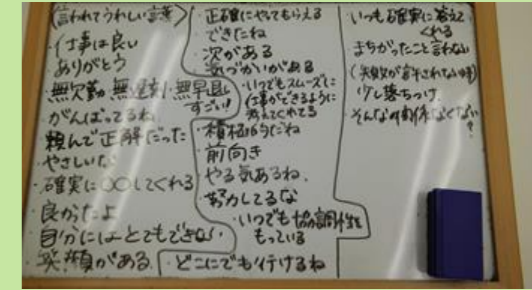 (言われてうれしい言葉)
・仕事は良い
ありがとう
・無欠勤・無遅刻・無早退
すごい!
・がんばってるね
頼んで正解だった
・やさしいな
・確実に○○してくれる
良かったよ
自分にはとてもできない
笑顔がある
・正確にやってもらえる
・できたね
次がある
気づかいがある
・いつもスムーズに
仕事ができるように
考えてくれてる
・積極的だね
・前向き
やる気あるね
努力してるな
・いつでも協調性を
もっている
・どこにでも行けるね
いつも確実に答えて
くれる
まちがったこと言わない
(失敗が許されない時)
少し落ちつけ
そんな関係なくない
?